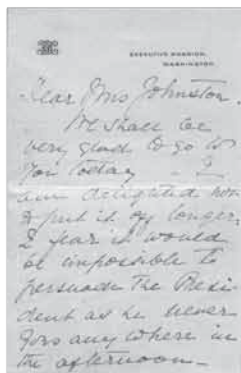 EXECUTIVE MANSION,
WASHINGTON.
Dear Mrs Johnston.
We shall be
very glad to go to
you today - I
am delighted not
to put it off longer.
I fear it would
be impossible to
persuade the Presi
dent as he never
goes anywhere in
the afternoon -